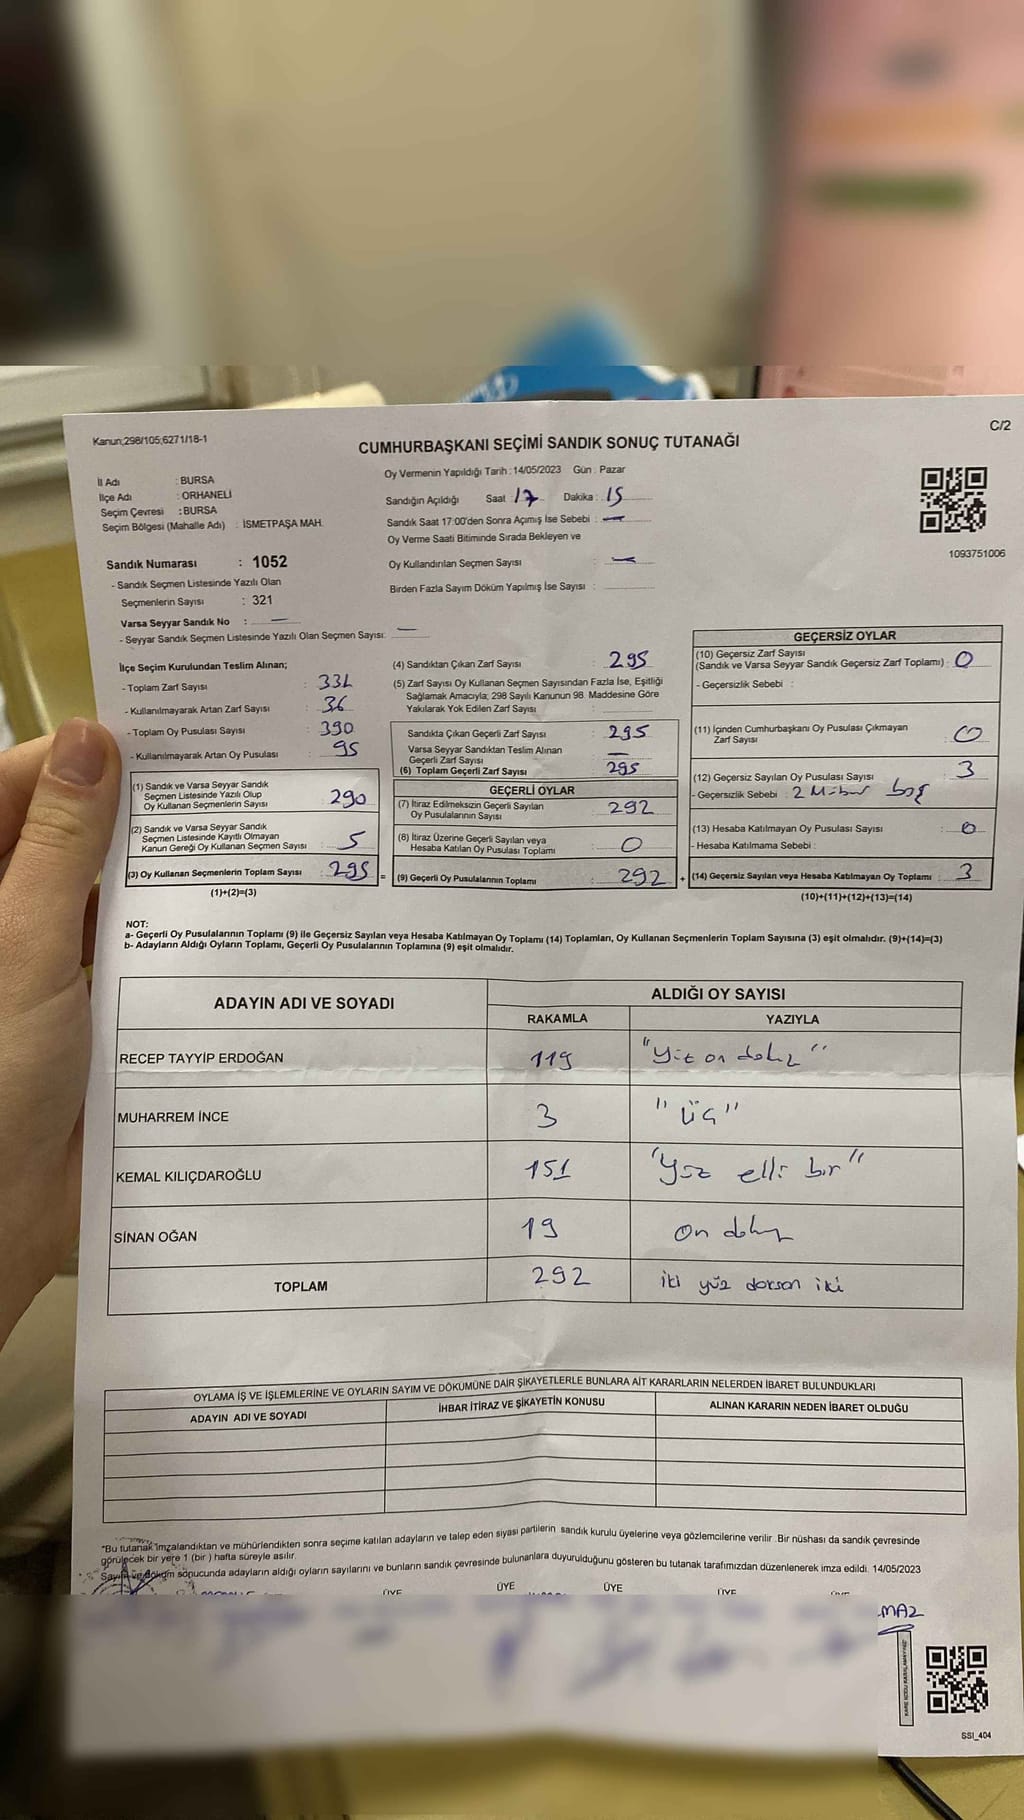 Kanun;298/105;6271/18-1
C/2
CUMHURBAŞKANI SEÇİMİ SANDIK SONUÇ TUTANAĞI
İl Adı : BURSA
İlçe Adı : ORHANELİ
Seçim Çevresi : BURSA
Seçim Bölgesi (Mahalle Adı) : İSMETPAŞA MAH.
Sandık Numarası : 1052
- Sandık Seçmen Listesinde Yazılı Olan
Seçmenlerin Sayısı : 321
Varsa Seyyar Sandık No : —
- Seyyar Sandık Seçmen Listesinde Yazılı Olan Seçmen Sayısı: —
Oy Vermenin Yapıldığı Tarih : 14/05/2023 Gün : Pazar
Sandığın Açıldığı Saat : 17 Dakika : 15
Sandık Saat 17:00'den Sonra Açımış İse Sebebi : —
Oy Verme Saati Bitiminde Sırada Bekleyen ve
Oy Kullandırılan Seçmen Sayısı : —
Birden Fazla Sayım Döküm Yapılmış İse Sayısı :
1093751006
İlçe Seçim Kurulundan Teslim Alınan;
- Toplam Zarf Sayısı :
- Kullanılmayarak Artan Zarf Sayısı : 36
- Toplam Oy Pusulası Sayısı : 390
- Kullanılmayarak Artan Oy Pusulası : 95
(1) Sandık ve Varsa Seyyar Sandık
Seçmen Listesinde Yazılı Olup
Oy Kullanan Seçmenlerin Sayısı : 290
(2) Sandık ve Varsa Seyyar Sandık
Seçmen Listesinde Kayıtlı Olmayan
Kanun Gereği Oy Kullanan Seçmen Sayısı : 5
(3) Oy Kullanan Seçmenlerin Toplam Sayısı : 295
(1)+(2)=(3)
(4) Sandıktan Çıkan Zarf Sayısı : 295
(5) Zarf Sayısı Oy Kullanan Seçmen Sayısından Fazla İse, Eşitliği
Sağlamak Amacıyla; 298 Sayılı Kanunun 98. Maddesine Göre
Yakılarak Yok Edilen Zarf Sayısı :
Sandıkta Çıkan Geçerli Zarf Sayısı : 295
Varsa Seyyar Sandıktan Teslim Alınan
Geçerli Zarf Sayısı : —
(6) Toplam Geçerli Zarf Sayısı : 295
GEÇERLİ OYLAR
(7) İtiraz Edilmeksizin Geçerli Sayılan
Oy Pusulalarının Sayısı : 292
(8) İtiraz Üzerine Geçerli Sayılan veya
Hesaba Katılan Oy Pusulası Toplamı : 0
= (9) Geçerli Oy Pusulalarının Toplamı : 292 +
GEÇERSİZ OYLAR
(10) Geçersiz Zarf Sayısı
(Sandık ve Varsa Seyyar Sandık Geçersiz Zarf Toplamı) : 0
- Geçersizlik Sebebi :
(11) İçinden Cumhurbaşkanı Oy Pusulası Çıkmayan
Zarf Sayısı : 0
(12) Geçersiz Sayılan Oy Pusulası Sayısı : 3
- Geçersizlik Sebebi : 2 boş
(13) Hesaba Katılmayan Oy Pusulası Sayısı : 0
- Hesaba Katılmama Sebebi :
(14) Geçersiz Sayılan veya Hesaba Katılmayan Oy Toplamı : 3
(10)+(11)+(12)+(13)=(14)
NOT:
a- Geçerli Oy Pusulalarının Toplamı (9) ile Geçersiz Sayılan veya Hesaba Katılmayan Oy Toplamı (14) Toplamları, Oy Kullanan Seçmenlerin Toplam Sayısına (3) eşit olmalıdır. (9)+(14)=(3)
b- Adayların Aldığı Oyların Toplamı, Geçerli Oy Pusulalarının Toplamına (9) eşit olmalıdır.
ADAYIN ADI VE SOYADI ALDIĞI OY SAYISI
RAKAMLA YAZIYLA
RECEP TAYYİP ERDOĞAN 119 "Yüz on dokuz"
MUHARREM İNCE 3 "Üç"
KEMAL KILIÇDAROĞLU 151 "Yüz elli bir"
SİNAN OĞAN 19 On dokuz
TOPLAM 292 iki yüz doksan iki
OYLAMA İŞ VE İŞLEMLERİNE VE OYLARIN SAYIM VE DÖKÜMÜNE DAİR ŞİKAYETLERLE BUNLARA AİT KARARLARIN NELERDEN İBARET BULUNDUKLARI
ADAYIN ADI VE SOYADI İHBAR İTİRAZ VE ŞİKAYETİN KONUSU ALINAN KARARIN NEDEN İBARET OLDUĞU
"Bu tutanak imzalandıktan ve mühürlendikten sonra seçime katılan adayların ve talep eden siyasi partilerin sandık kurulu üyelerine veya gözlemcilerine verilir. Bir nüshası da sandık çevresinde
görülecek bir yere 1 (bir) hafta süreyle asılır.
Sayım ve döküm sonucunda adayların aldığı oyların sayılarını ve bunların sandık çevresinde bulunanlara duyurulduğunu gösteren bu tutanak tarafımızdan düzenlenerek imza edildi. 14/05/2023
ÜYE ÜYE ÜYE ÜYE
MAZ
SSI_404